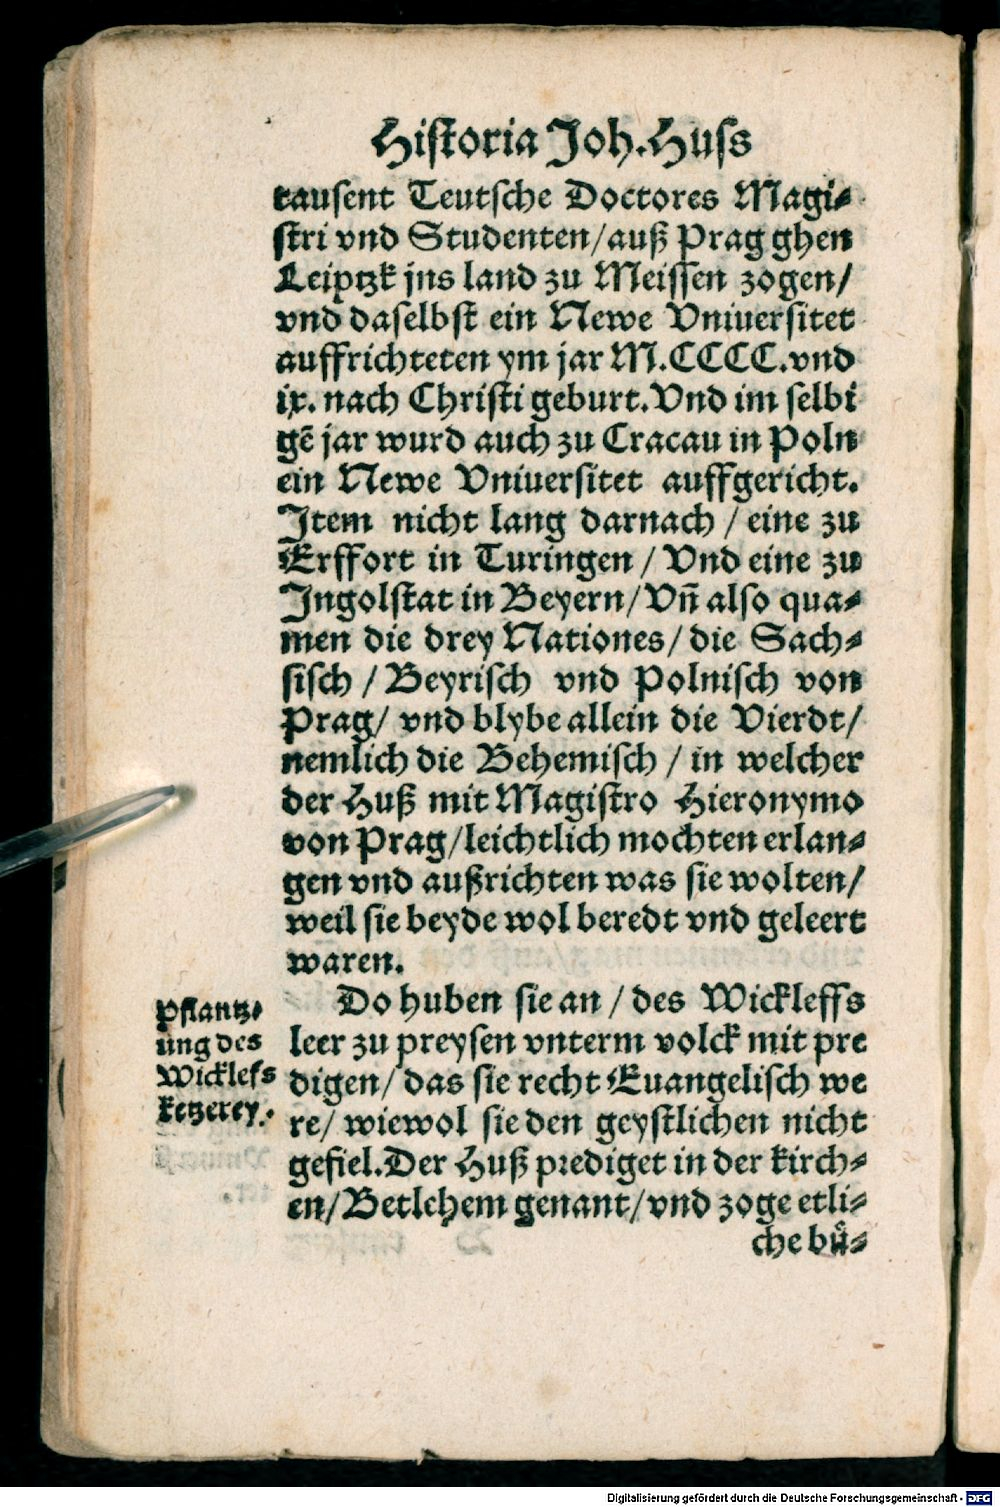 Historia Joh. Huss
tausent Teutsche Doctores Magi⸗
stri vnd Studenten/auß Prag ghen
Leiptzk jns land zu Meissen zogen/
vnd daselbst ein Newe Vniuersitet
auffrichteten ym jar M.CCCC.vnd
ix. nach Christi geburt. Vnd im selbi
gē jar wurd auch zu Cracau in Poln
ein Newe Vniuersitet auffgericht.
Item nicht lang darnach / eine zu
Erffort in Turingen / Vnd eine zu
Ingolstat in Beyern/ Vñ also qua⸗
men die drey Nationes/ die Sach⸗
sisch / Beyrisch vnd Polnisch von
Prag/ vnd blybe allein die Vierdt/
nemlich die Behemisch / in welcher
der Huß mit Magistro Hieronymo
von Prag/leichtlich mochten erlan⸗
gen vnd außrichten was sie wolten/
weil sie beyde wol beredt vnd geleert
waren.
Do huben sie an / des Wickleffs
leer zu preysen vnterm volck mit pre
digen/ das sie recht Euangelisch we
re/ wiewol sie den geystlichen nicht
gefiel. Der Huß prediget in der kirch⸗
en/ Betlehem genant/ vnd zoge etli⸗
che buͤ⸗
Pflantz⸗
ung des
Wicklefs
ketzerey.
Digitalisierung gefördert durch die Deutsche Forschungsgemeinschaft - DFG